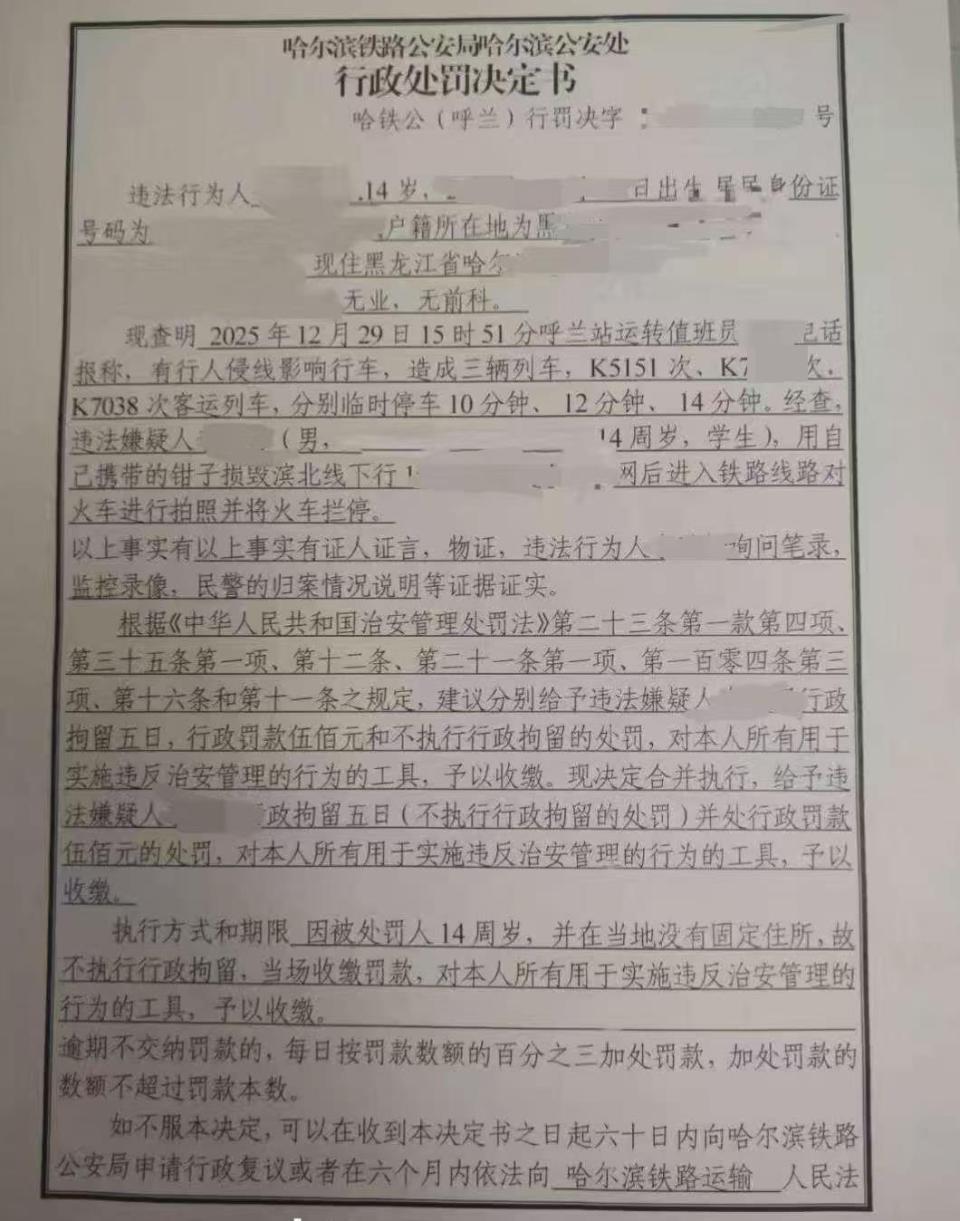 哈尔滨铁路公安局哈尔滨公安处
行政处罚决定书
哈铁公（呼兰）行罚决字 号
违法行为人 14 岁， 日出生 居民身份证
号码为 户籍所在地为黑
现住黑龙江省哈尔
无业，无前科。
现查明 2025 年 12 月 29 日 15 时 51 分呼兰站运转值班员 话
报称，有行人侵线影响行车，造成三辆列车，K5151 次、K7 次，
K7038 次客运列车，分别临时停车 10 分钟、 12 分钟、 14 分钟。经查，
违法嫌疑人 （男， 14 周岁，学生），用自
己携带的钳子损毁滨北线下行 网后进入铁路线路对
火车进行拍照并将火车拦停。
以上事实有以上事实有证人证言，物证，违法行为人 询问笔录，
监控录像，民警的归案情况说明等证据证实。
根据《中华人民共和国治安管理处罚法》第二十三条第一款第四项、
第三十五条第一项、第十二条、第二十一条第一项、第一百零四条第三
项、第十六条和第十一条之规定，建议分别给予违法嫌疑人 行政
拘留五日，行政罚款伍佰元和不执行行政拘留的处罚，对本人所有用于
实施违反治安管理的行为的工具，予以收缴。现决定合并执行，给予违
法嫌疑人 政拘留五日（不执行行政拘留的处罚）并处行政罚款
伍佰元的处罚，对本人所有用于实施违反治安管理的行为的工具，予以
收缴。
执行方式和期限 因被处罚人 14 周岁，并在当地没有固定住所，故
不执行行政拘留，当场收缴罚款，对本人所有用于实施违反治安管理的
行为的工具，予以收缴。
逾期不交纳罚款的，每日按罚款数额的百分之三加处罚款，加处罚款的
数额不超过罚款本数。
如不服本决定，可以在收到本决定书之日起六十日内向哈尔滨铁路
公安局申请行政复议或者在六个月内依法向 哈尔滨铁路运输 人民法